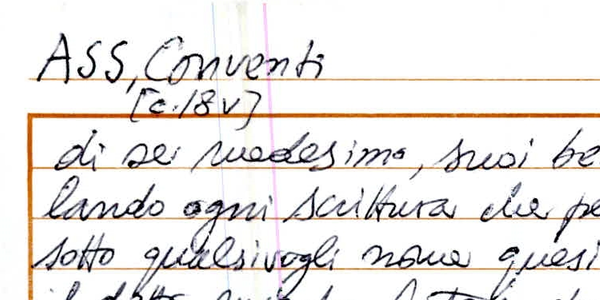 ASS, Conventi
[c. 18 v]
di se medesimo, suoi be
lando ogni scrittura che pe
sotto qualsivogli nome quesi
il detto